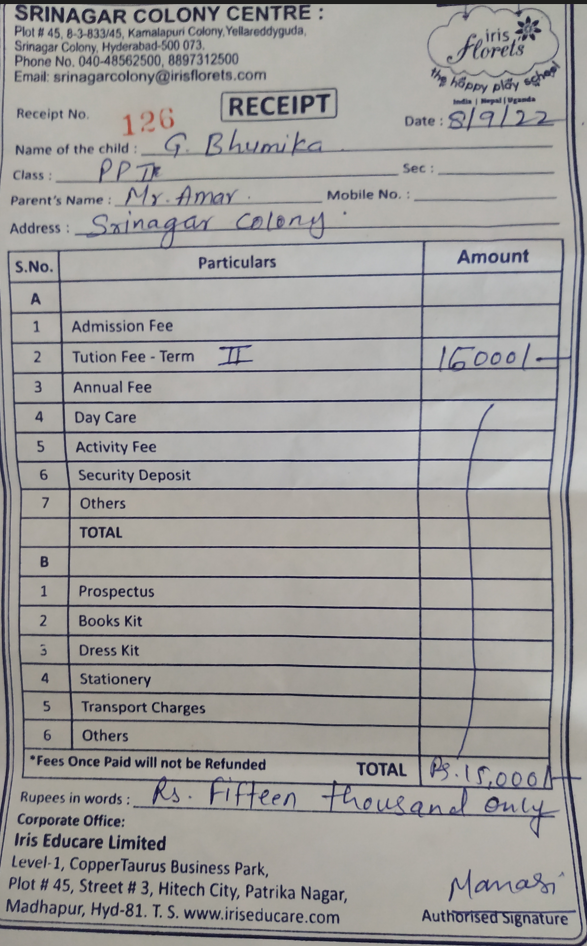 SRINAGAR COLONY CENTRE :
Plot # 45, 8-3-833/45, Kamalapuri Colony,Yellareddyguda,
Srinagar Colony, Hyderabad-500 073.
Phone No. 040-48562500, 8897312500
Email: srinagarcolony@irisflorets.com
iris
florets
the happy play school
India | Nepal | Uganda
Receipt No. 126
RECEIPT
Date : 8/9/22
Name of the child : G. Bhumika
Class : PP II Sec :
Parent's Name : Mr. Amar. Mobile No. :
Address : Srinagar colony
S.No. Particulars Amount
A
1 Admission Fee
2 Tution Fee - Term II 15000/-
3 Annual Fee
4 Day Care
5 Activity Fee
6 Security Deposit
7 Others
TOTAL
B
1 Prospectus
2 Books Kit
3 Dress Kit
4 Stationery
5 Transport Charges
6 Others
*Fees Once Paid will not be Refunded TOTAL Rs. 15,000/-
Rupees in words : Rs. Fifteen thousand only
Corporate Office:
Iris Educare Limited
Level-1, CopperTaurus Business Park,
Plot # 45, Street # 3, Hitech City, Patrika Nagar,
Madhapur, Hyd-81. T. S. www.iriseducare.com
Manasi
Authorised Signature